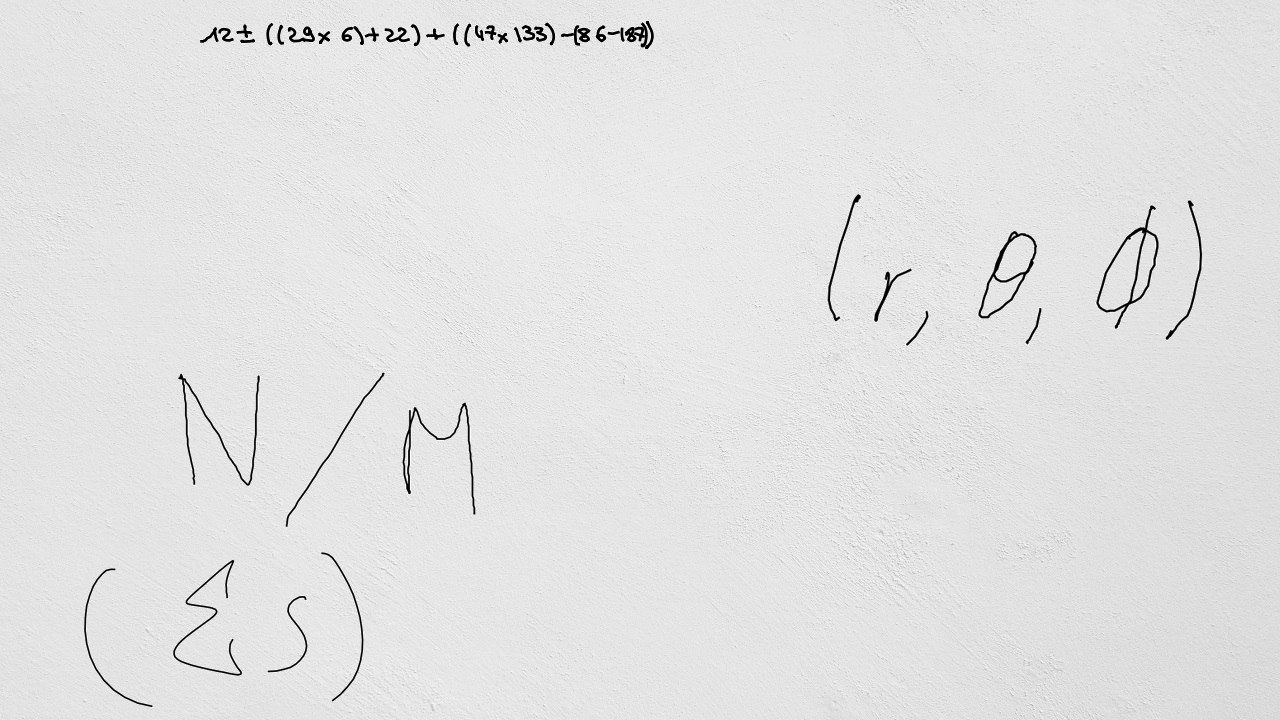 12 ± ((29 × 6) + 22) + ((47 × 133) - (86 - 187))
(r, θ, ϕ)
N / M
(Σ s)